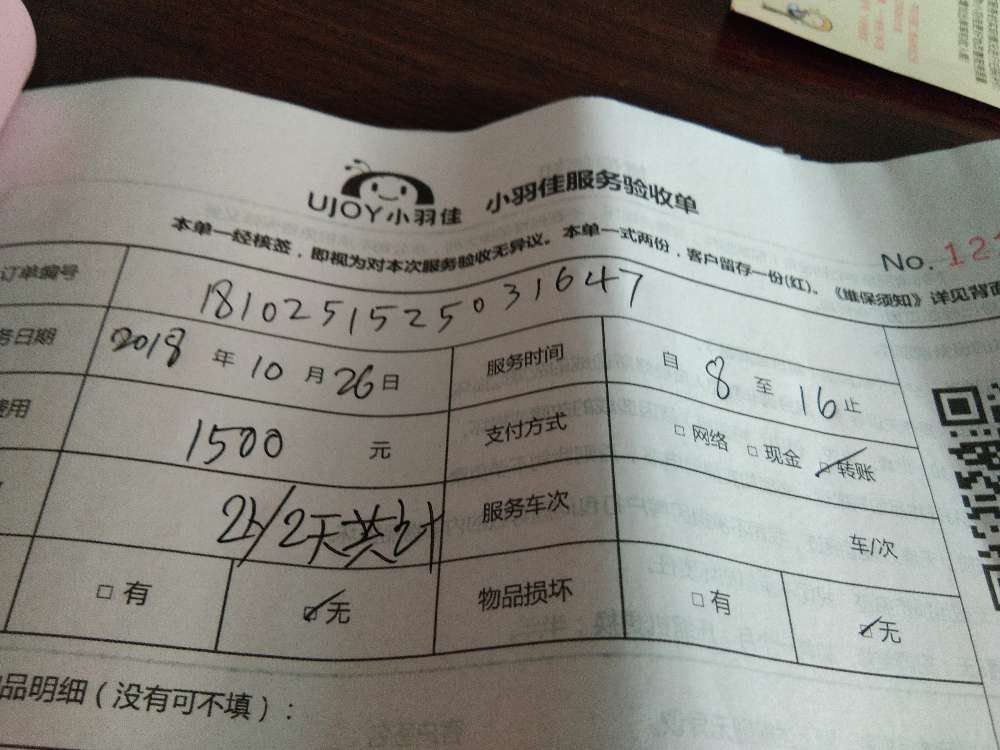 UJOY小羽佳 小羽佳服务验收单
本单一经核签，即视为对本次服务验收无异议。本单一式两份，客户留存一份(红)。《维保须知》详见背面
No. 121
订单编号 1810251525031647
务日期 2018 年 10 月 26 日 服务时间 自 8 至 16 止
费用 1500 元 支付方式 □ 网络 □ 现金 ☑ 转账
2天共计 服务车次 车/次
□ 有 ☑ 无 物品损坏 □ 有 ☑ 无
品明细（没有可不填）：